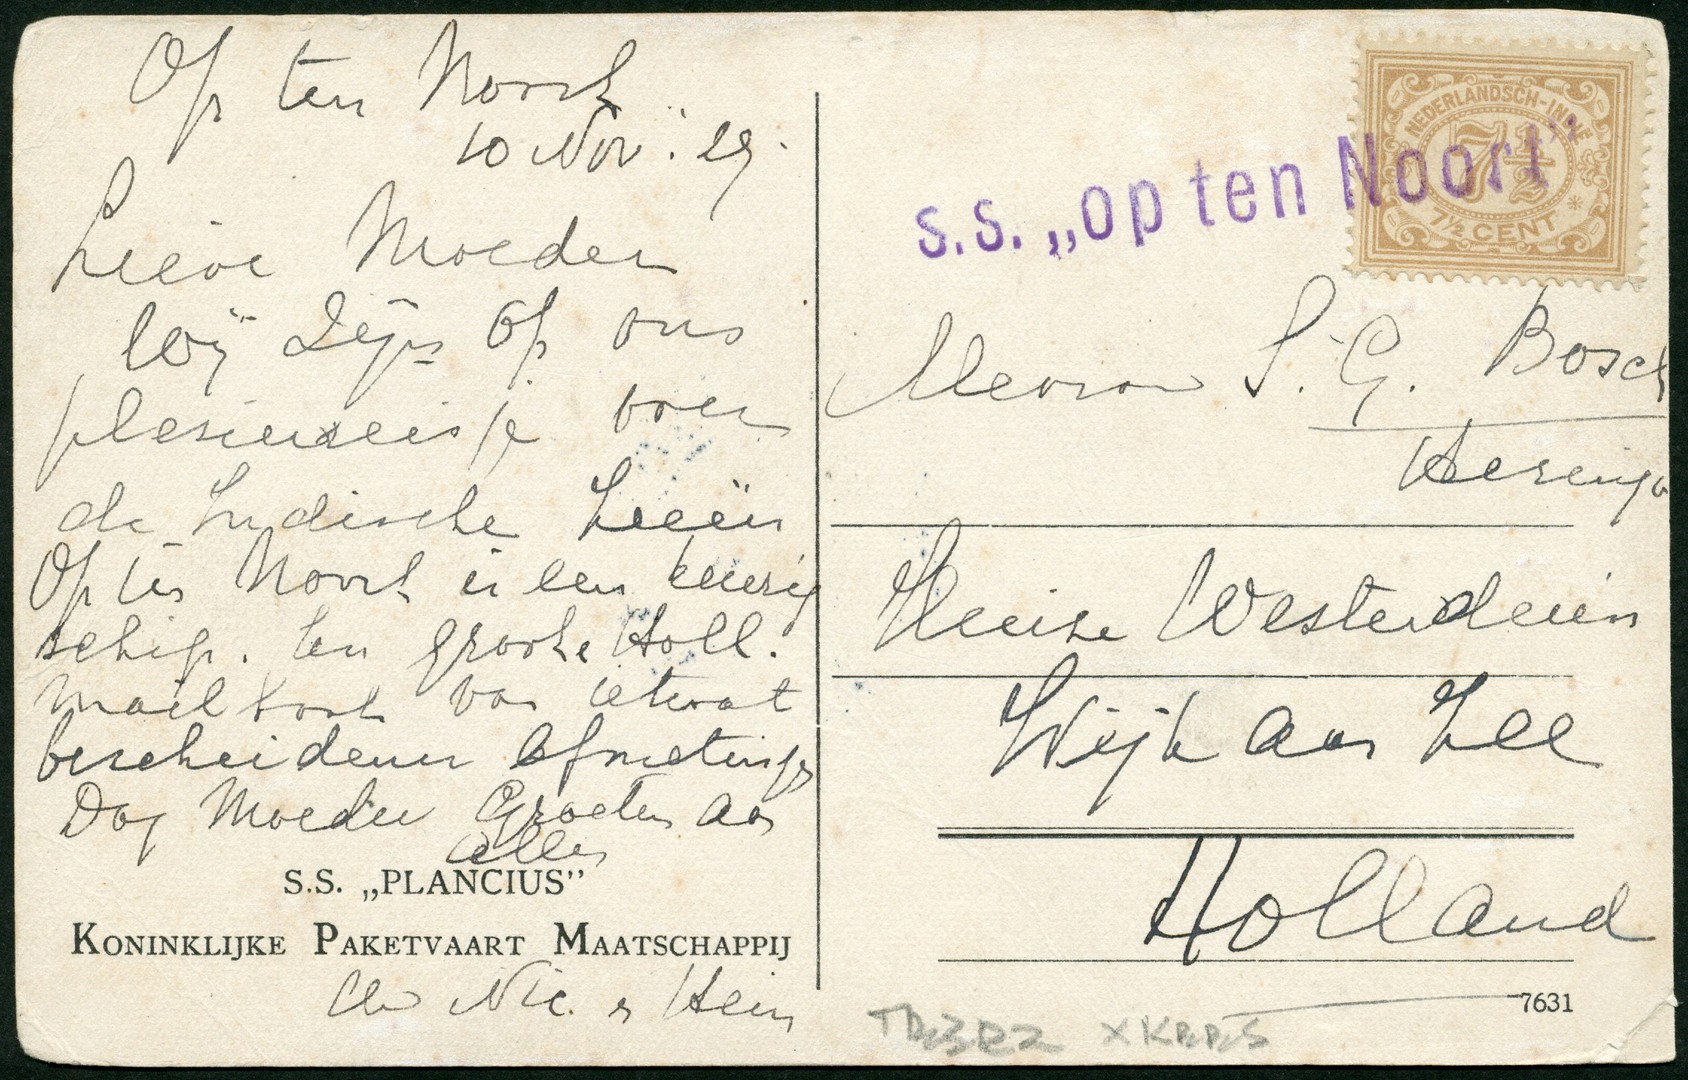 Op ten Noort
10 Nov. 29.
Lieve Moeder
Wij zijn op ons
plesierreisje over
de Indische Zeeën
Op ten Noort is een keurig
schip. Een groote Holl.
mailboot van ietwat
bescheidener afmetinge
Dag Moeder Groeten aan
allen
S.S. „PLANCIUS”
KONINKLIJKE PAKETVAART MAATSCHAPPIJ
Nic. en Hein
NEDERLANDSCH-INDIE
7½
7½ CENT
s.s. „op ten Noort"
Mevrouw S. G. Bosch
Heringa
Huize Westerduin
Wijk aan Zee
Holland
7631